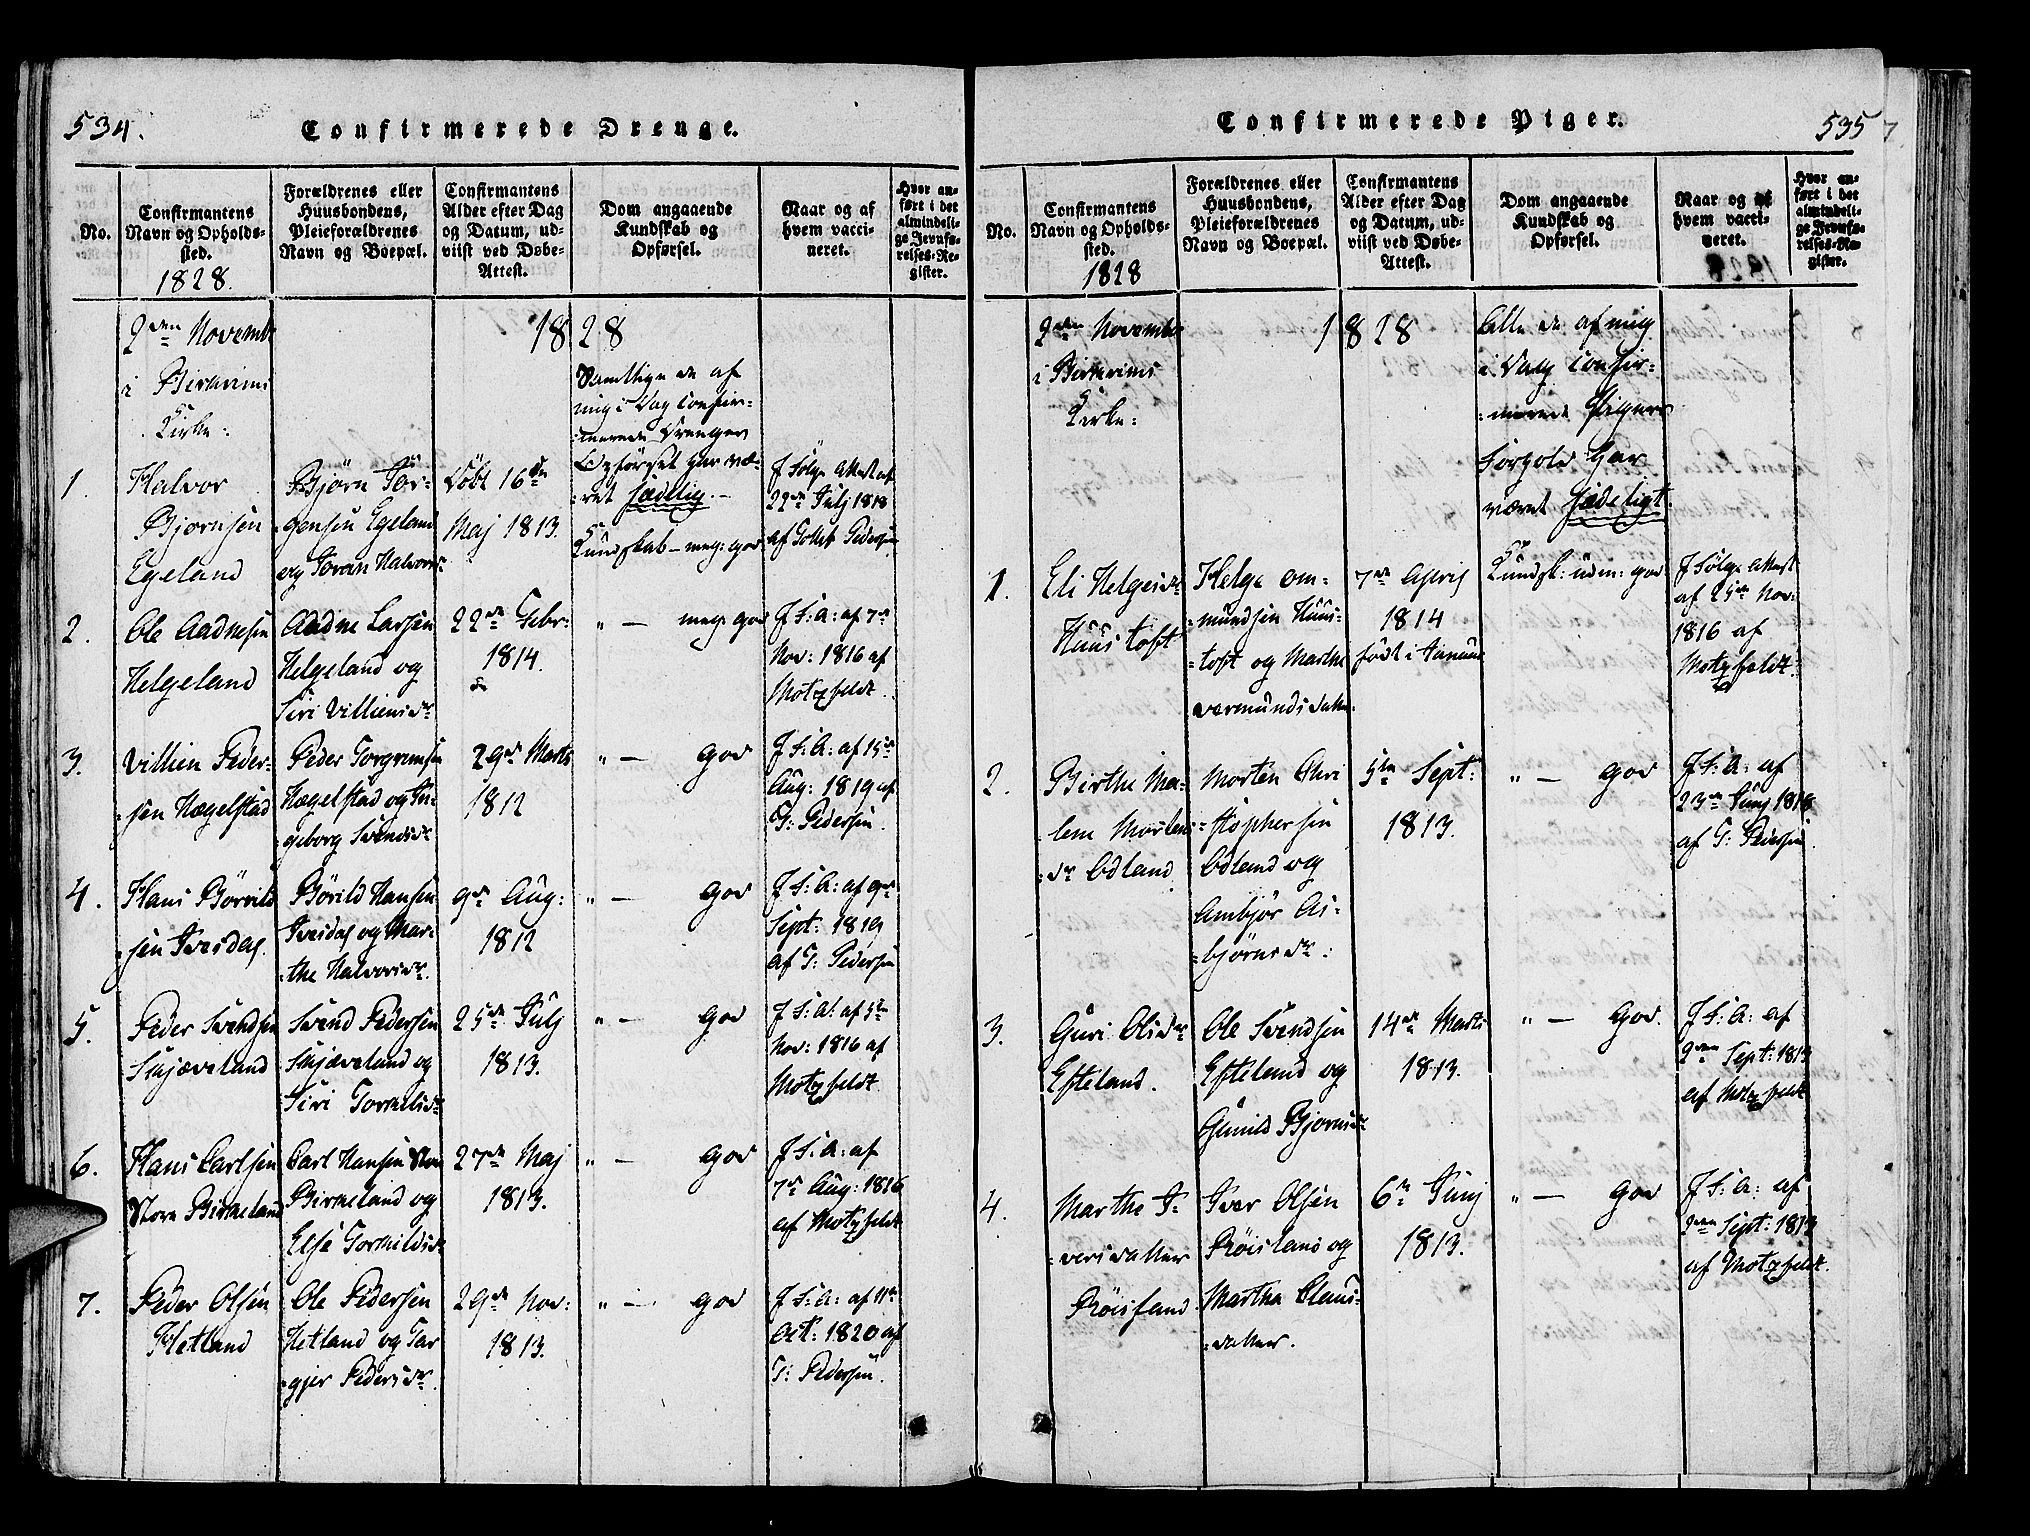 534.
Confirmerede Drenge.
No.
Confirmantens
Navn og Opholds-
sted.
1828.
Forældrenes eller
Huusbondens,
Pleieforældrenes
Navn og Boepæl.
Confirmantens
Alder efter Dag
og Datum, ud-
viist ved Døbe-
Attest.
Dom angaaende
Kundskab og
Opførsel.
Naar og af
hvem vacci-
neret.
Hvor an-
ført i det
almindeli-
ge Jevnfø-
relses-Re-
gister.
2den Novembr
i
Kirke:
1828
Samtlige de af
mig i Dag Confir-
=merede Drenges
Opførsel har væ-
=ret sædelig.-
Kundskab - meg: god
1.
Halvor
Bjørnsen
Egeland
Bjørn Tør-
=gensen Egeland
og Halvors=
Döbt 16de
Maj 1813.
J Følge Attest af
22de Julj 1818
af Tollet Pedersen
2.
Ole Aadnesen
Helgeland
Aadne Larsen
Helgeland og
Siri Villiensdr
22de Febr-
1814.
" — meg: god
J F: A: af 7de
Nov: 1816 af
Motzfeldt.
3.
Villien Peder-
=sen Hægelstad
Peder Torgrimsen
Hægelstad og In-
=geborg Svendsdr
29de Marts
1812
" — god
J F: A: af 15de
Aug: 1819 af
T: Pedersen.
4.
Hans Börild
=sen Ivesdal.
Börild Hansen
Ivesdal og Mar-
=the Halvorsdr.
9de Aug:
1812
" — god
J F: A: af 9de
Sept: 1819
af T: Pedersen
5.
Peder Svendsen
Skjæveland
Svend Pedersen
Skjæveland og
Siri Torkelsdr
25de Julj
1813.
" — god
J F: A: af 5te
Nov: 1816 af
Motzfeldt.
6.
Hans Carlsen
Store Birkeland
Carl Hansen Store
Birkeland og
Else Torkildsdr
27de Maj
1813.
" — god
J F: A: af
7de Aug: 1816
af Motzfeldt
7.
Peder Olsen
Hetland
Ole Pedersen
Hetland og Tar
=gjer Pedersdr.
29de Nov:
1813.
" — god
J F: A: af 11te
Oct: 1820 af
T: Pedersen.
535
Confirmerede Piger.
No.
Confirmantens
Navn og Opholds-
sted.
1828
Forældrenes eller
Huusbondens,
Pleieforældrenes
Navn og Boepæl.
Confirmantens
Alder efter Dag
og Datum, ud-
viist ved Døbe-
Attest.
Dom angaaende
Kundskab og
Opførsel.
Naar og af
hvem vacci-
neret.
Hvor an-
ført i det
almindeli-
ge Jevnfø-
relses-Re-
gister.
2den Novembr
i
Kirke:
1828
Alle de af mig
i Dag Confir-
=merede Pigers
Forhold har
været sædeligt.
1.
Eli Helgesdr
Huustoft
Helge Om-
=mundsen Huus-
=toft og Marthe
Vermundsdatter
7de April
1814
født i Januar
Kundsk: udm: god
J Følge Attest
af 25de Nov:
1816 af
Motzfeldt.
2.
Birthe Ma-
lene Morten
=dr Ödland
Morten Chri
=stophersen
Ödland og
Ambjør As-
=bjørnsdr:
5te Sept:
1813.
" — god
J F: A: af
23de Junj 1818
af T: Pedersen
3.
Guri Olsdr
Efteland.
Ole Svendsen
Efteland og
Gunild Bjørnsdr
14de Marts
1813.
" — god.
J F: A: af
2den Sept: 1813
af Motzfeldt
4.
Marthe I-
=versdatter
Röisland
Iver Olsen
Röisland og
Martha Claus-
=datter.
6te Junj
1813.
" — god
J F: A: af
2den Sept: 1813
af Motzfeldt.